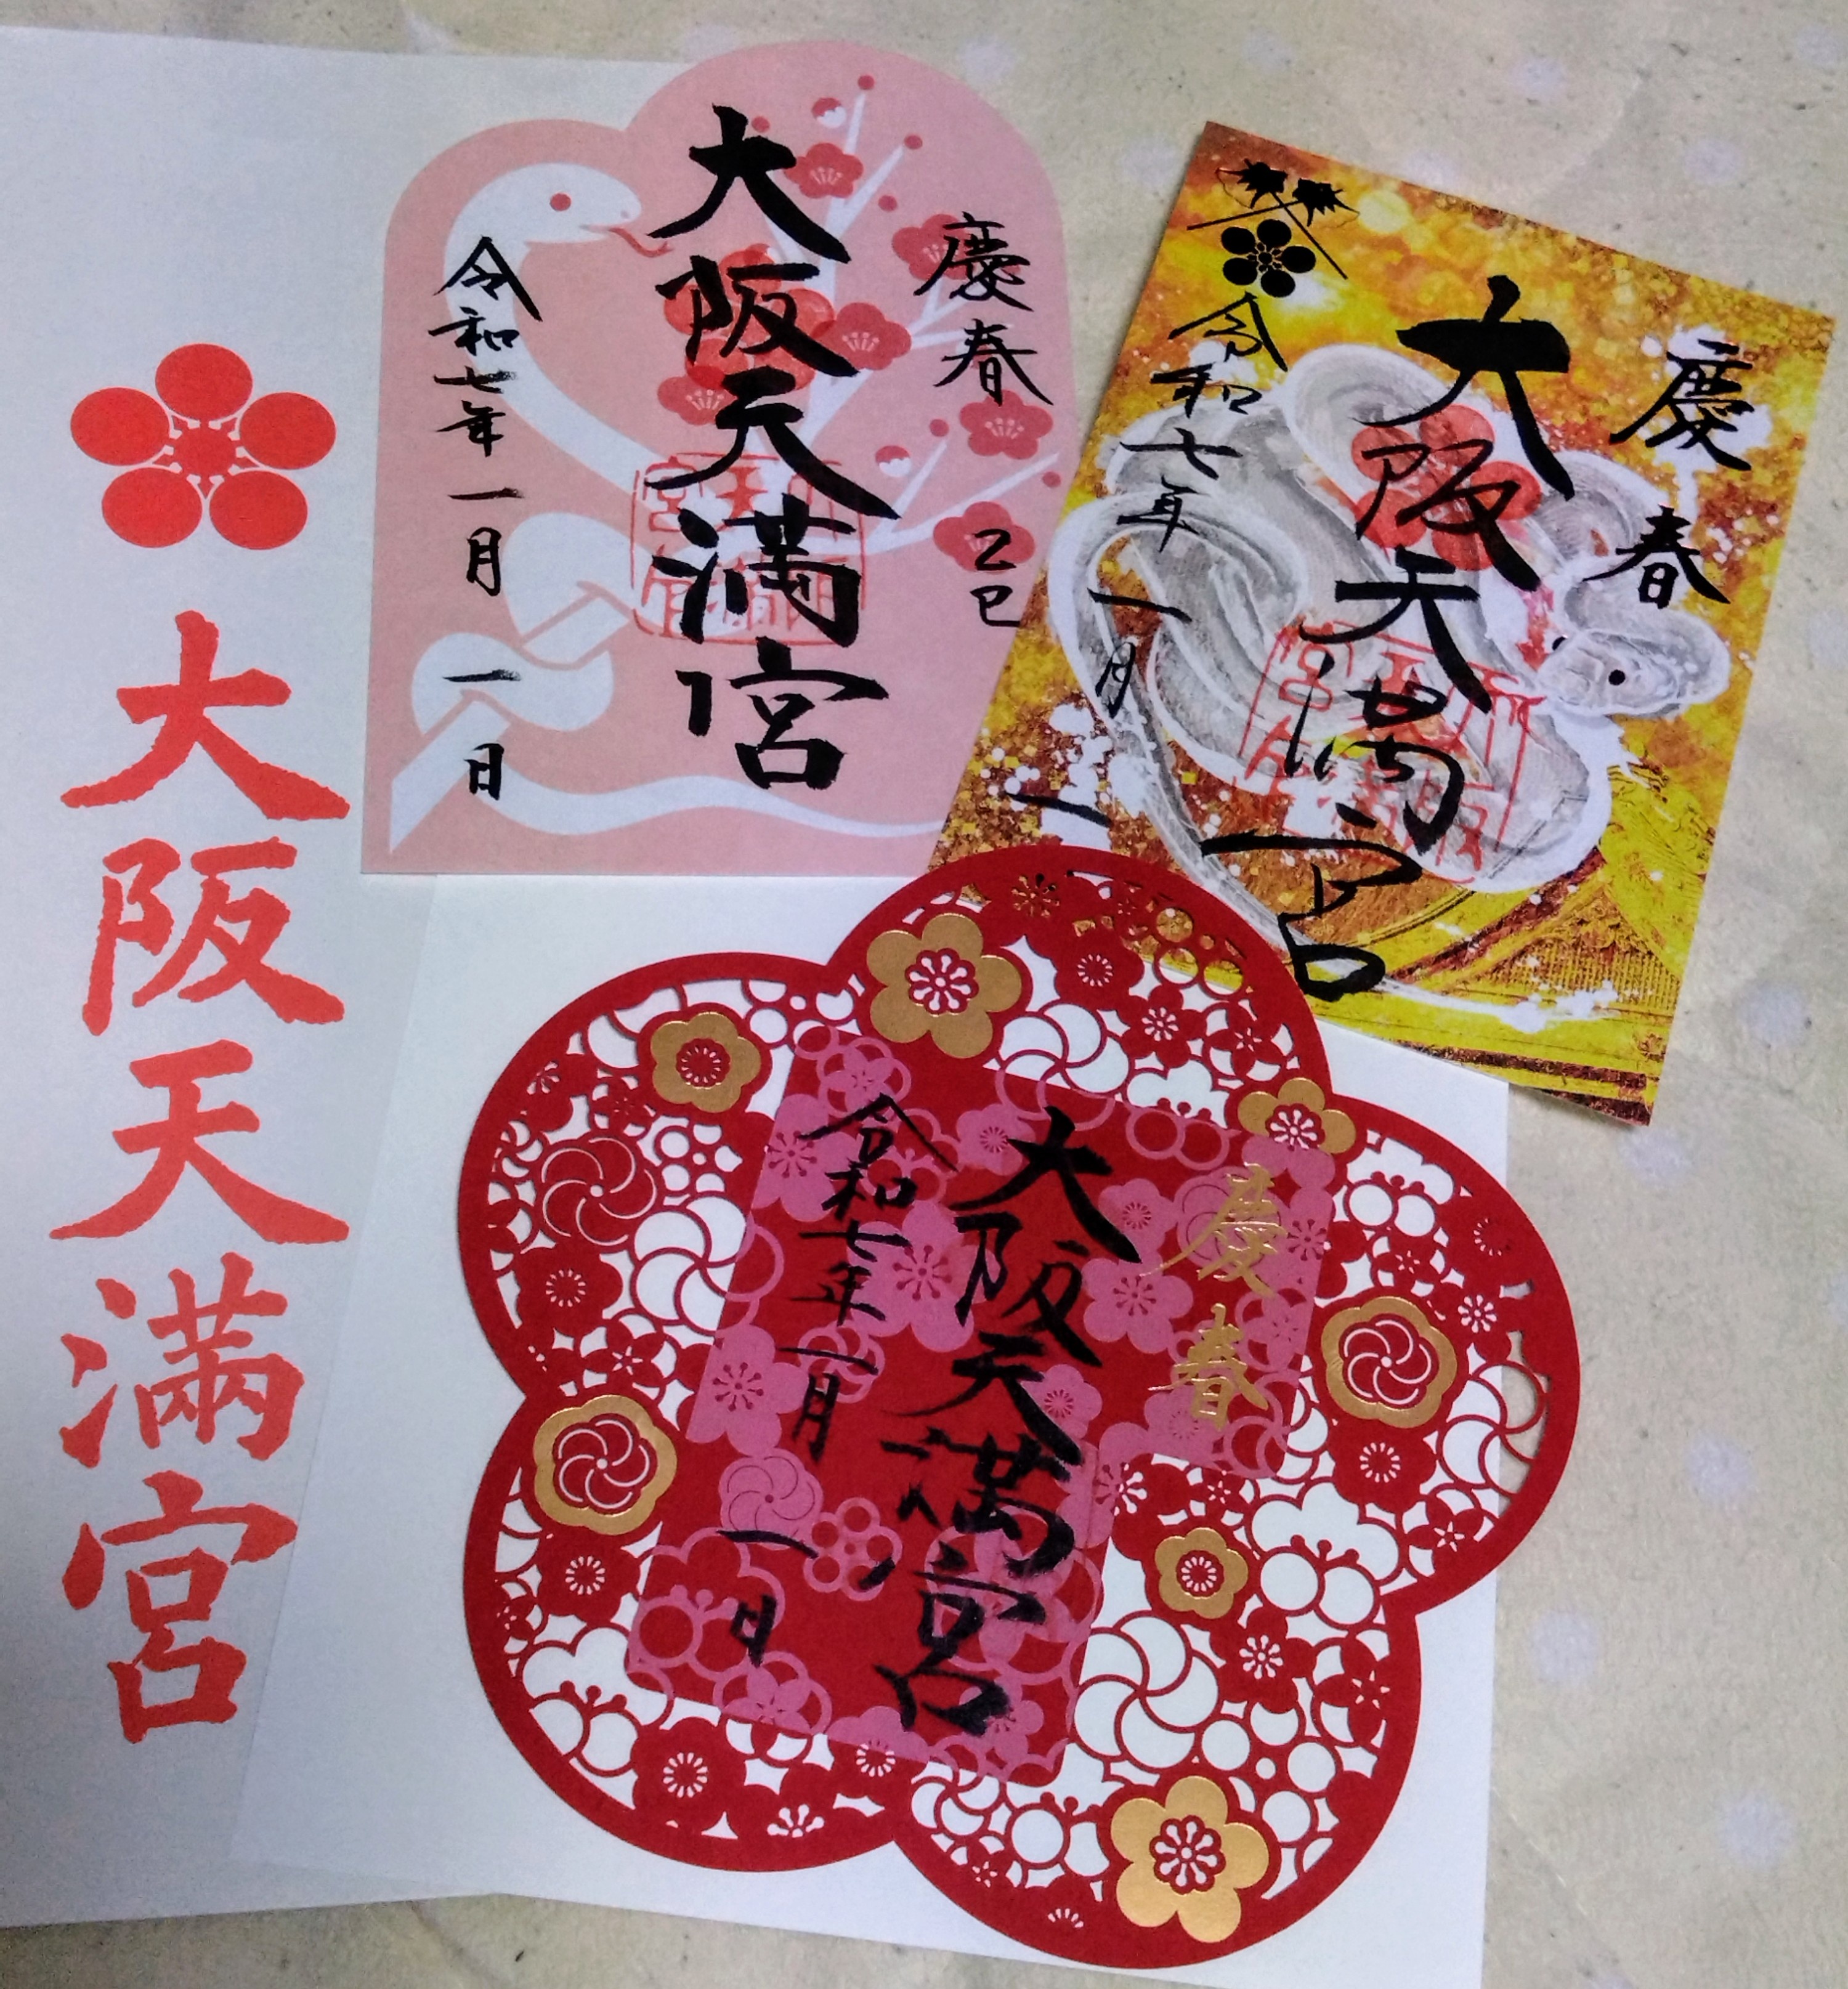 大阪天満宮
慶春
乙巳
大阪天満宮
令和七年一月一日
慶春
大阪天満宮
令和七年一月一
慶春
大阪天満宮
令和七年一月一日